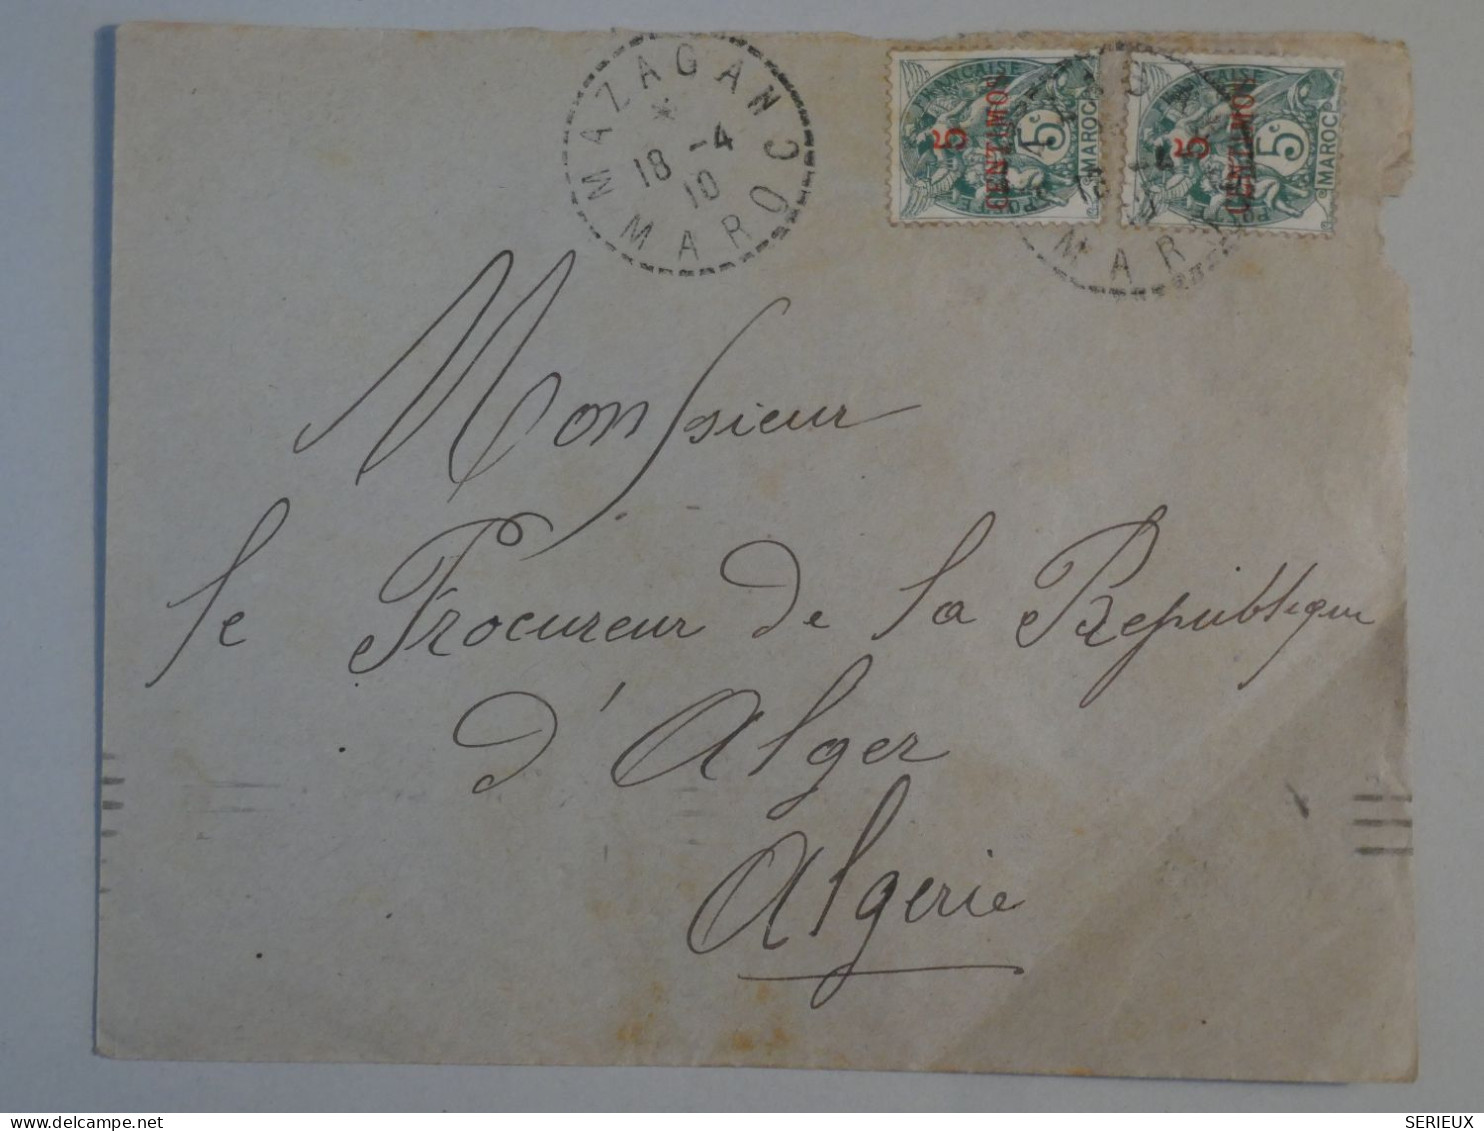 MAZAGAN
*
18 -4
10
MAROC
FRANÇAISE
5
CENTIMOS
5c
MAROC
POSTE
5
CENTIMOS
5c
MAROC
POSTE
MAR
Monsieur
le Procureur de la Republique
d'Alger
Algerie
SERIEUX